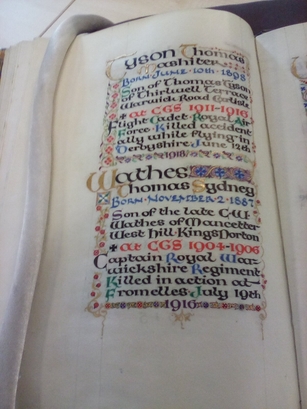 Tyson Thomas
Mashiter
Born·June·10th·1898
Son of Thomas Tyson
of Thirlwell Terrace
Warwick Road Carlisle
✠ at CGS 1911-1916
Flight Cadet Royal Air
Force·Killed accident
ally while flying in
Derbyshire June 12th
1918
Wathes
Thomas Sydney
Born·November·2·1887
Son of the late C·W·
Wathes of Mancetter
West Hill·Kings Norton
✠ at CGS 1904-1906
Captain Royal War-
wickshire Regiment
Killed in action at-
Fromelles July 19th
1916